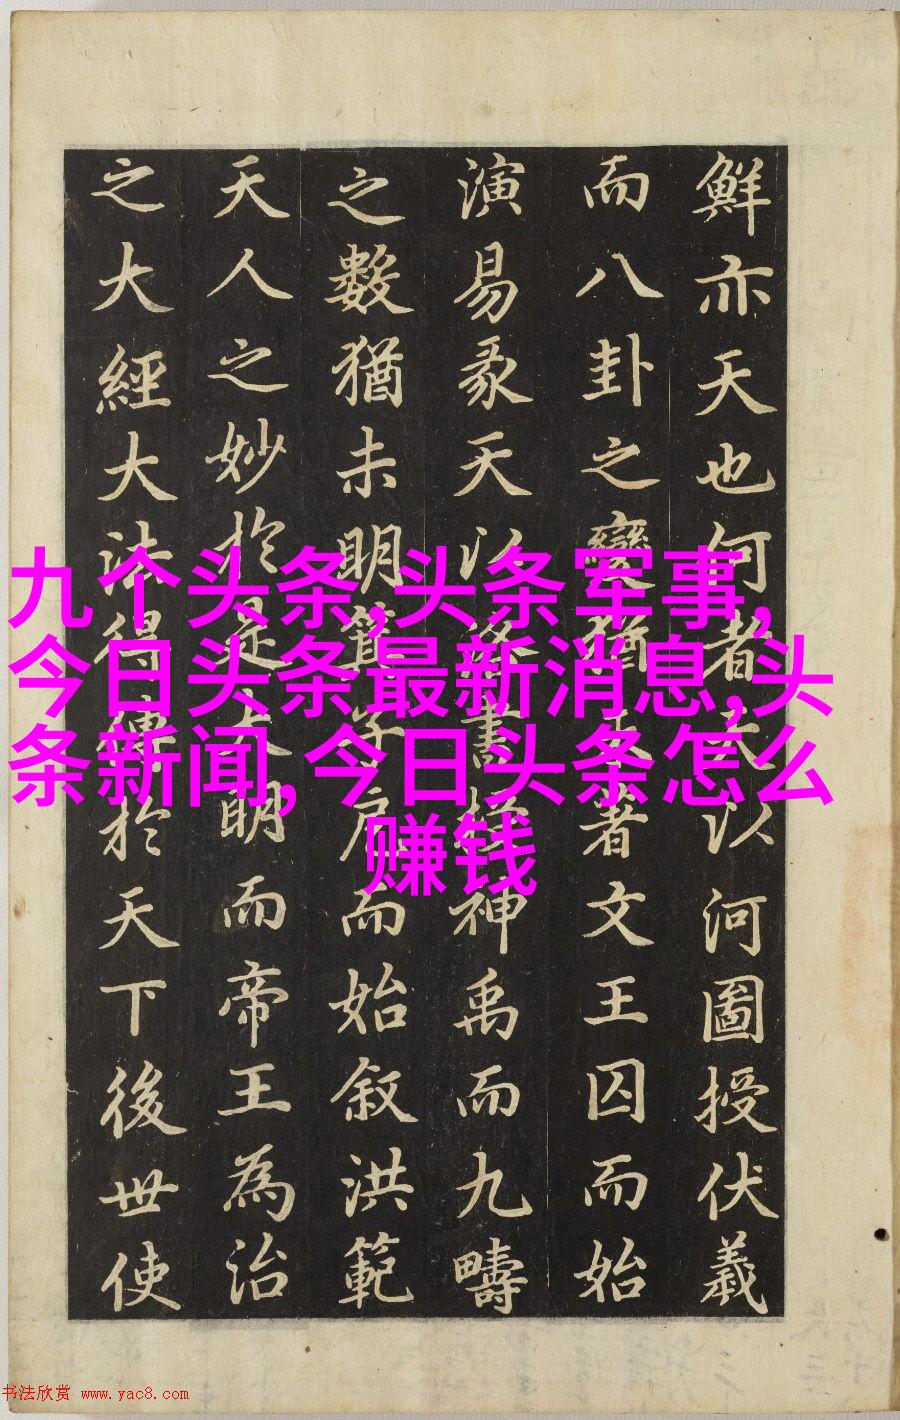 鮮亦天也何者天以河圖授伏羲
而八卦之變著文王囚而始
演易彖天以洛書授神禹而九疇
之數猶未明箕子而始叙洪範
天人之妙於是大明而帝王為治
之大經大法得傳於天下後世使
九个头条,头条军事,
今日头条最新消息,头
条新闻,今日头条怎么
赚钱
书法欣赏 www.yac8.com